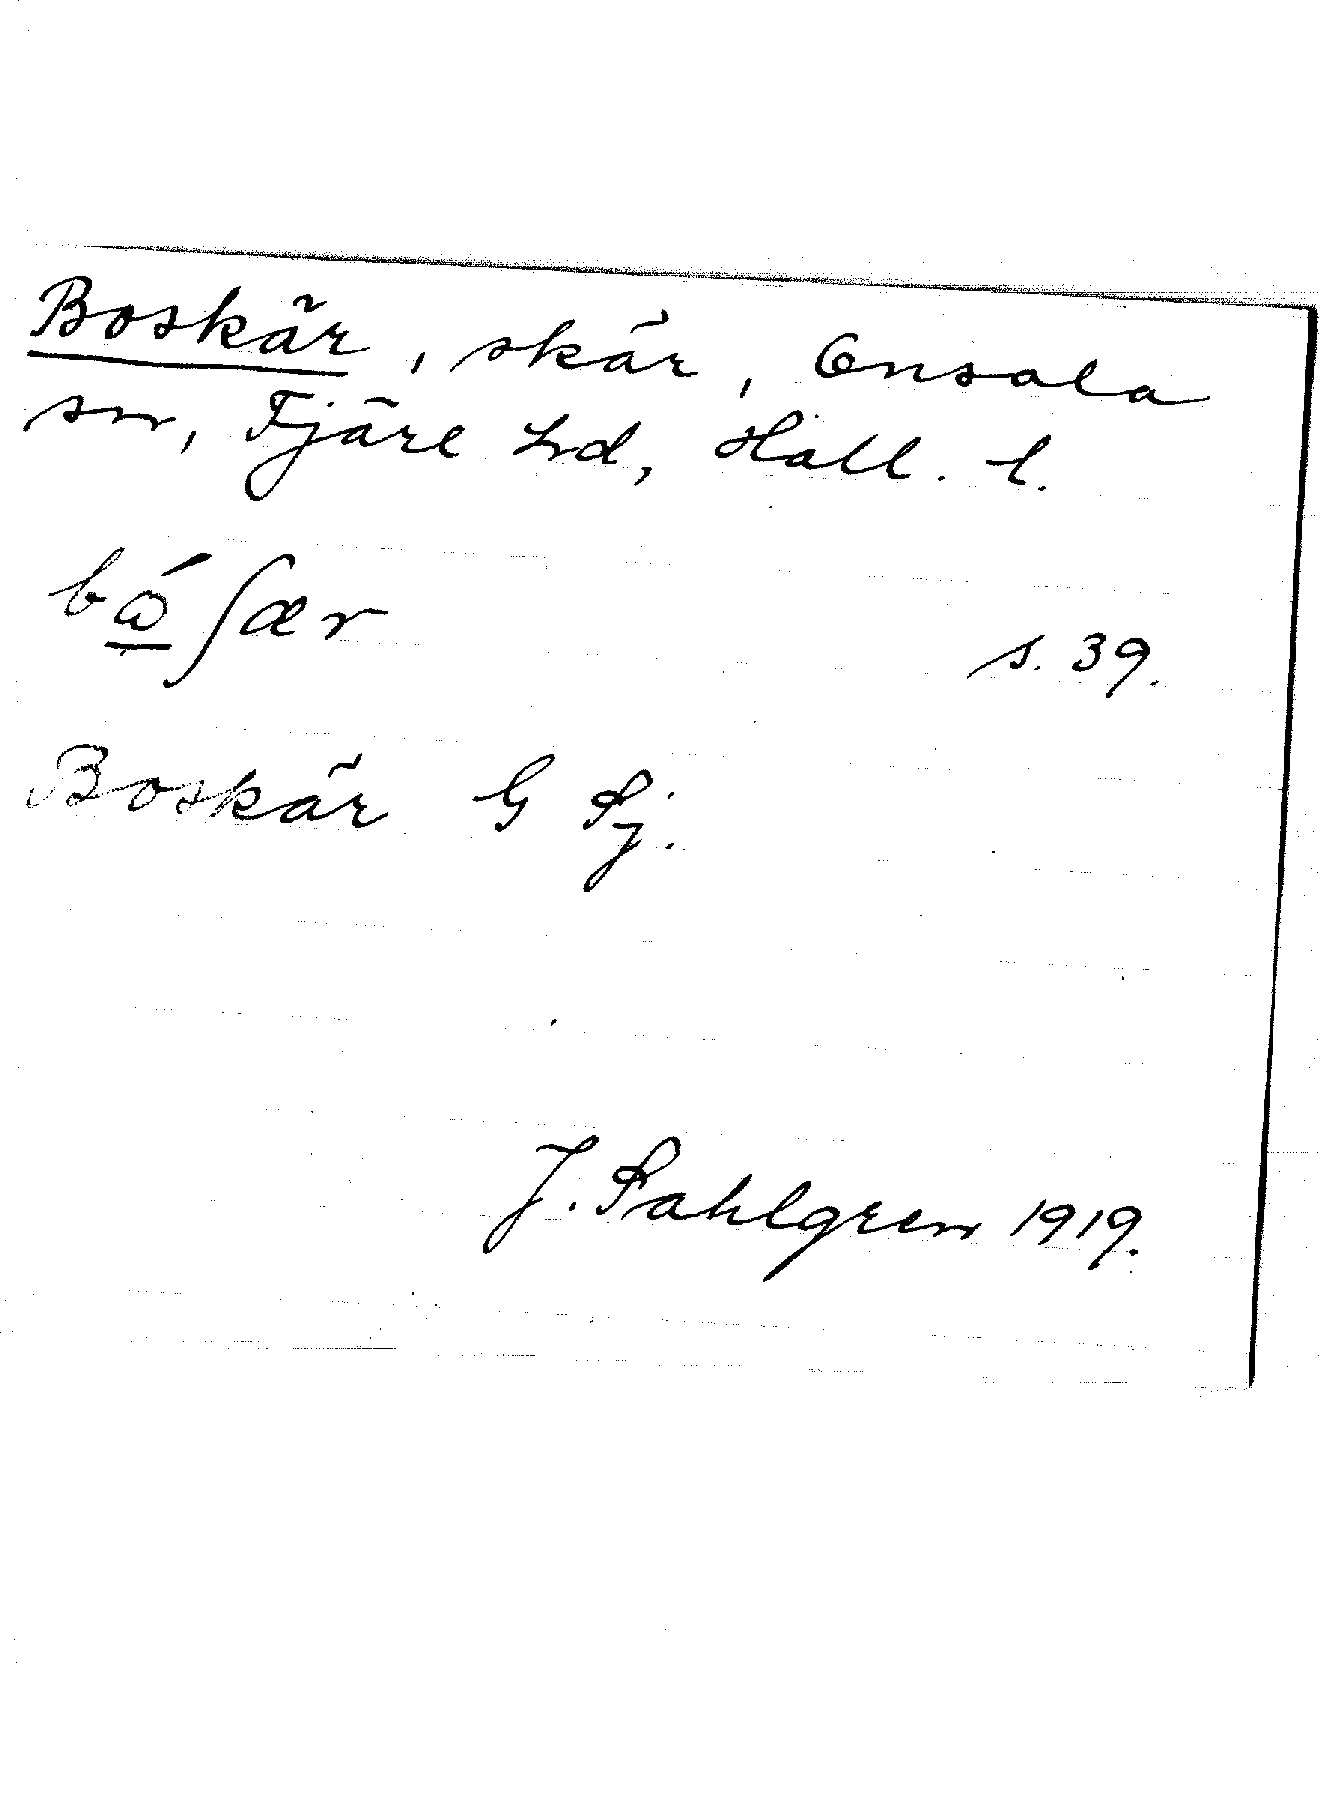 Boskär, skär, Onsala
sn, Fjäre hd, Hall. l.
bǿʃær
s. 39.
Boskär G Sj.
J. Sahlgren 1919.